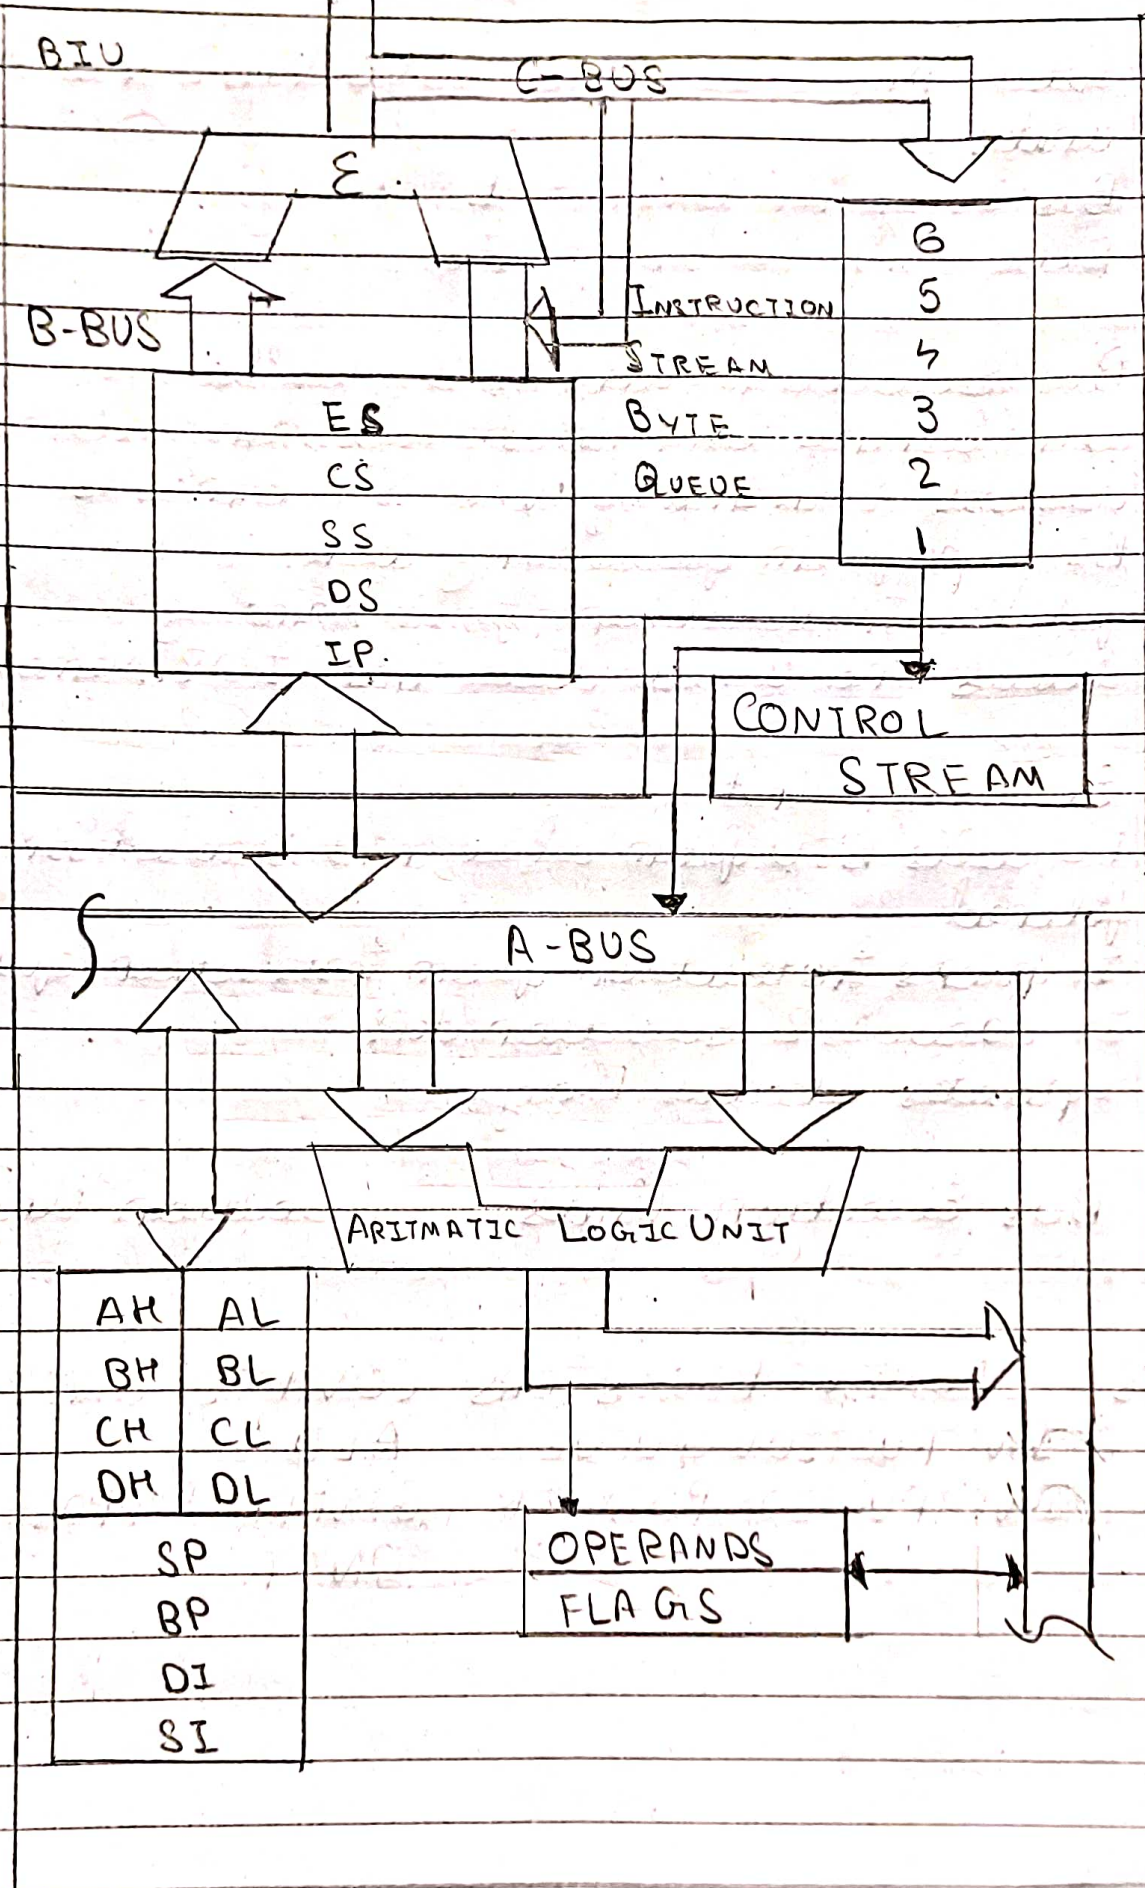 BIU
C-BUS
Σ
B-BUS
INSTRUCTION
STREAM
BYTE
QUEUE
6
5
4
3
2
1
ES
CS
SS
DS
IP.
CONTROL
STREAM
A-BUS
ARITMATIC LOGIC UNIT
AH AL
BH BL
CH CL
DH DL
SP
BP
DI
SI
OPERANDS
FLAGS